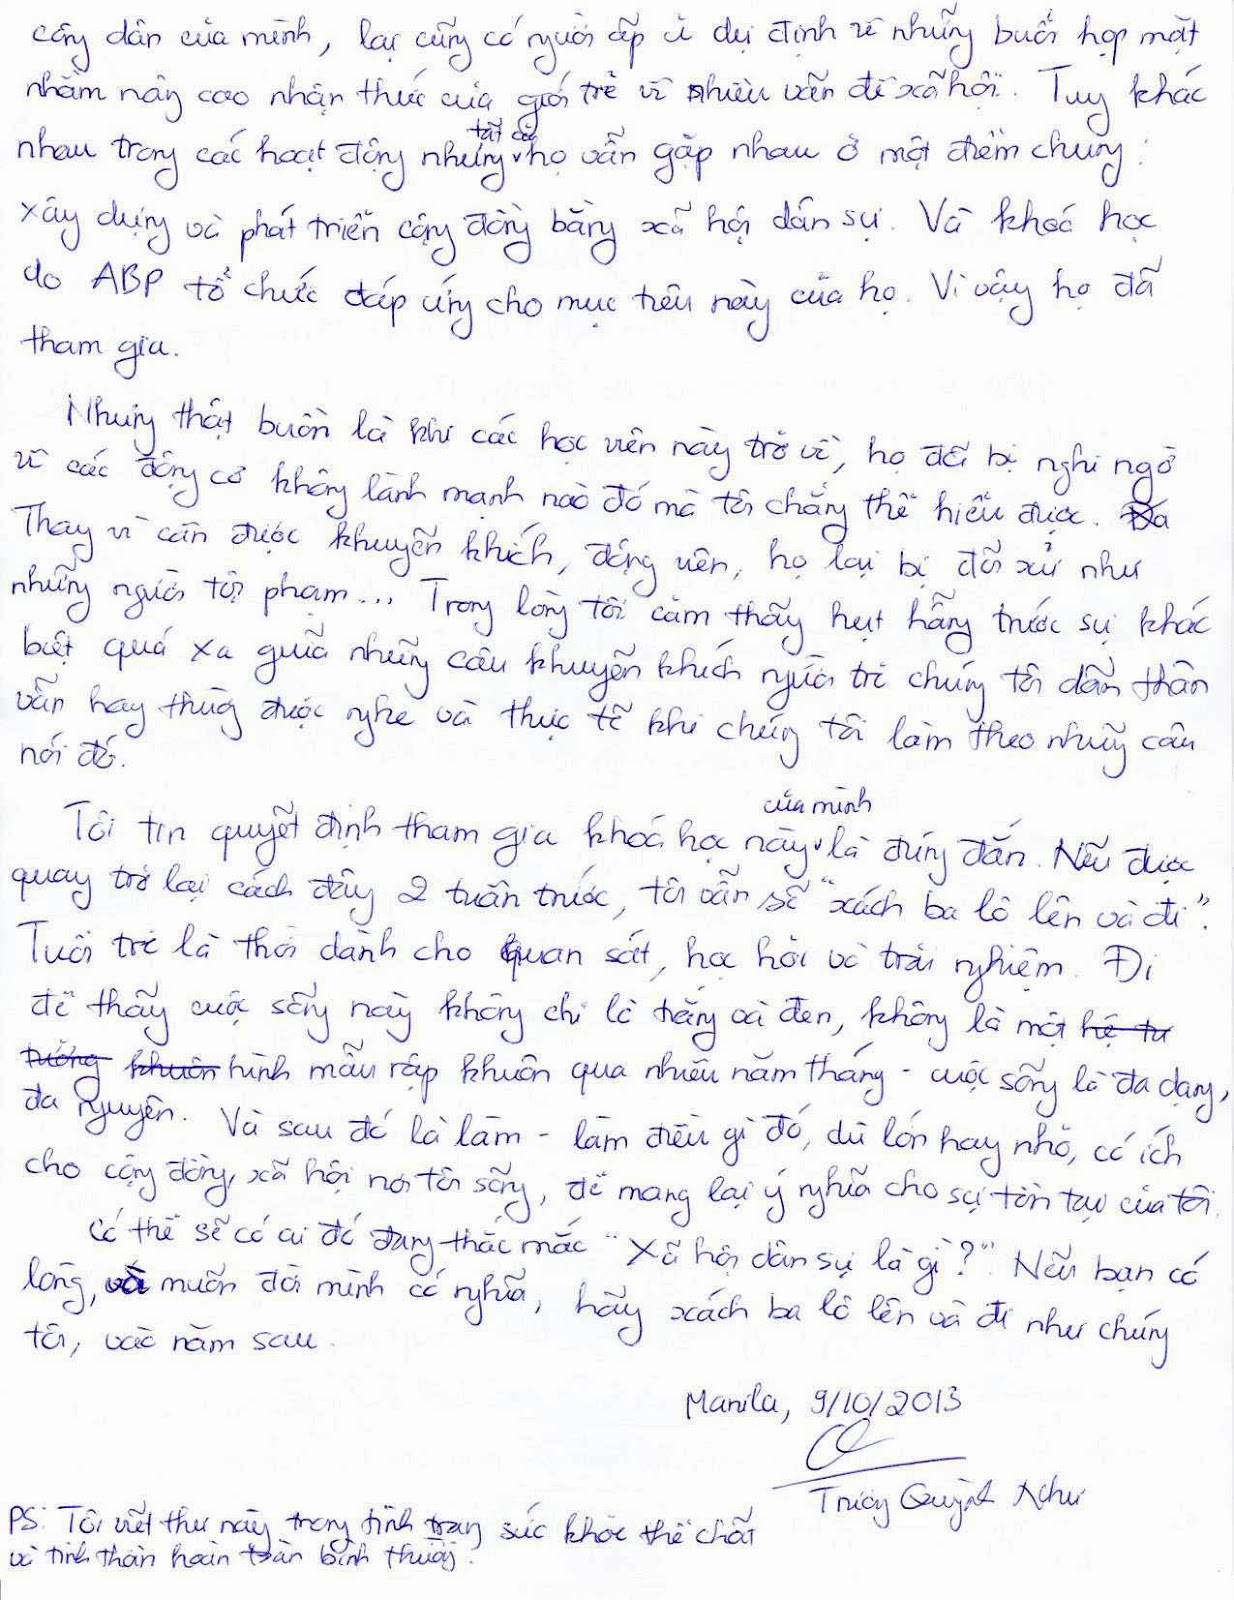 công dân của mình, lại cũng có người ấp ủ dự định về những buổi họp mặt
nhằm nâng cao nhận thức của giới trẻ về nhiều vấn đề xã hội. Tuy khác
nhau trong các hoạt động nhưng tất cả họ vẫn gặp nhau ở một điểm chung:
xây dựng và phát triển cộng đồng bằng xã hội dân sự. Và khoá học
do ABP tổ chức đáp ứng cho mục tiêu này của họ. Vì vậy họ đã
tham gia.
Nhưng thật buồn là khi các học viên này trở về, họ đã bị nghi ngờ
về các động cơ không lành mạnh nào đó mà tôi chẳng thể hiểu được.
Thay vì cần được khuyến khích, động viên, họ lại bị đối xử như
những người tội phạm... Trong lòng tôi cảm thấy hụt hẫng trước sự khác
biệt quá xa giữa những câu khuyến khích người trẻ chúng tôi dấn thân
vẫn hay thường được nghe và thực tế khi chúng tôi làm theo những câu
nói đó.
Tôi tin quyết định tham gia khoá học này của mình là đúng đắn. Nếu được
quay trở lại cách đây 2 tuần trước, tôi vẫn sẽ "xách ba lô lên và đi".
Tuổi trẻ là thời dành cho quan sát, học hỏi và trải nghiệm. Đi
để thấy cuộc sống này không chỉ là trắng và đen, không là một hệ tư
tưởng khuôn hình mẫu rập khuôn qua nhiều năm tháng - cuộc sống là đa dạng,
đa nguyên. Và sau đó là làm - làm điều gì đó, dù lớn hay nhỏ, có ích
cho cộng đồng, xã hội nơi tôi sống, để mang lại ý nghĩa cho sự tồn tại của tôi.
Có thể sẽ có ai đó đang thắc mắc "Xã hội dân sự là gì?" Nếu bạn có
lòng, và muốn đời mình có nghĩa, hãy xách ba lô lên và đi như chúng
tôi, vào năm sau.
Manila, 9/10/2013
Trương Quỳnh Như
PS: Tôi viết thư này trong tình trạng sức khỏe thể chất
và tinh thần hoàn toàn bình thường.